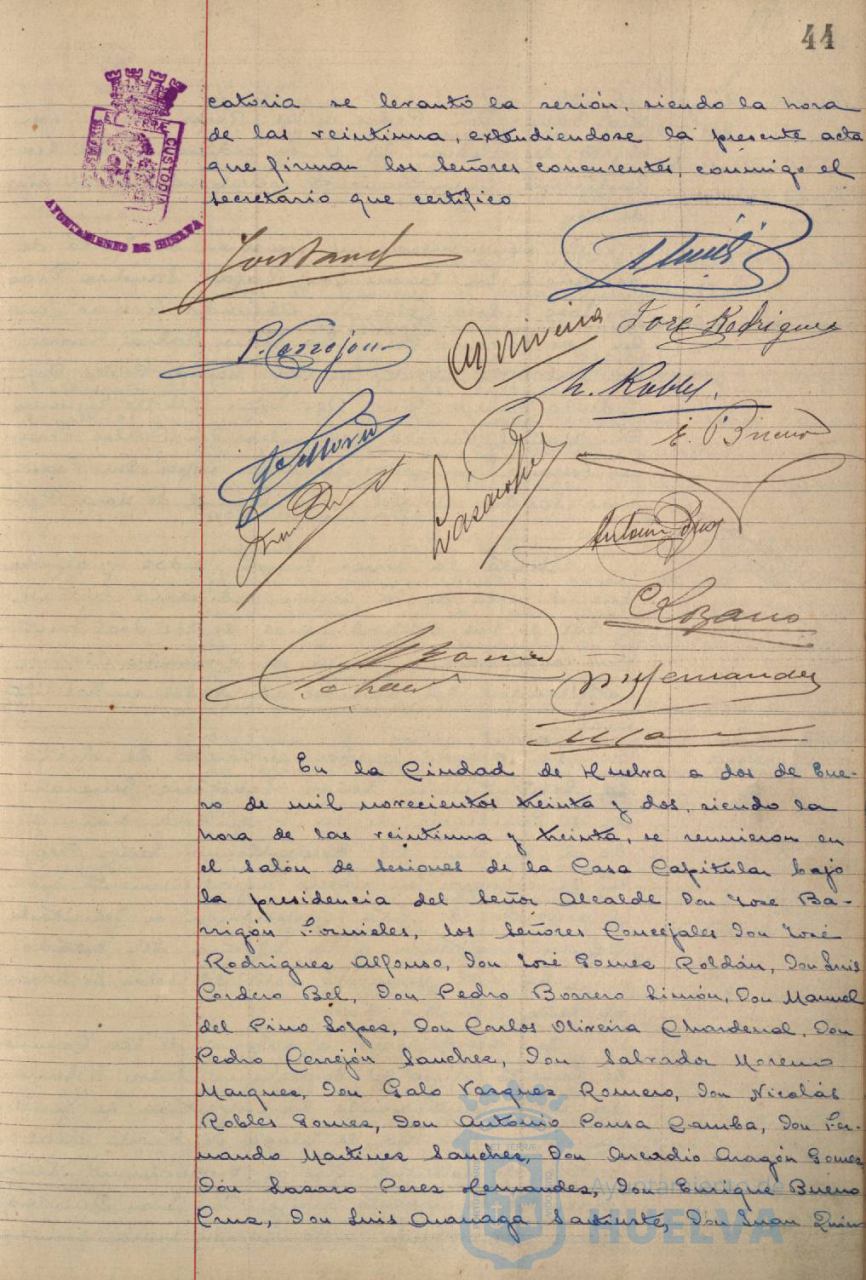 44
catoria se levantó la sesión, siendo la hora
de las veintiuna, extendiendose la presente acta
que firman los señores concurentes, conmigo el
secretario que certifico
AYUNTAMIENTO DE HUELVA
P. Cerrejon
Oliveira
José Rodriguez
N. Robles.
E. Bueno
Antonio Pousa
C Lozano
Hernandez
En la Ciudad de Huelva a dos de Ene-
ro de mil novecientos treinta y dos, siendo la
hora de las veintiuna y treinta, se reunieron en
el salón de sesiones de la Casa Capitular bajo
la presidencia del señor Alcalde Don José Ba-
rrigón Fornieles, los señores Concejales Don José
Rodrigues Alfonso, Don José Gomes Roldán, Don Luis
Cordero Bel, Don Pedro Borrero Limón, Don Manuel
del Pino Lopes, Don Carlos Oliveira Chardenal, Don
Pedro Cerrejón Sanches, Don Salvador Moreno
Marques, Don Galo Vasques Romero, Don Nicolás
Robles Gomes, Don Antonio Pousa Camba, Don Fer-
nando Martines Sanches, Don Arcadio Aragón Gomes
Don Lasaro Peres Hernandes, Don Enrique Bueno
Crus, Don Luis Don Juan Quin
Ayuntamiento de
HUELVA